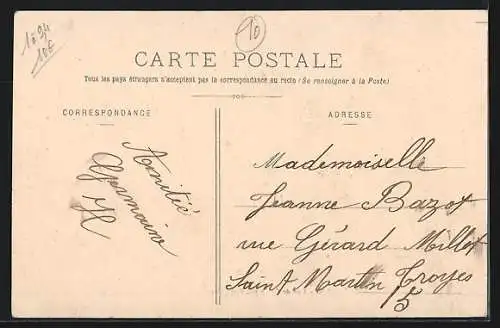 10
CARTE POSTALE
Tous les pays étrangers n'acceptent pas la correspondance au recto (Se renseigner à la Poste)
CORRESPONDANCE
ADRESSE
Amitié
Germaine
Mademoiselle
Jeanne Bazot
rue Gérard Millet
Saint Martin Troyes
5